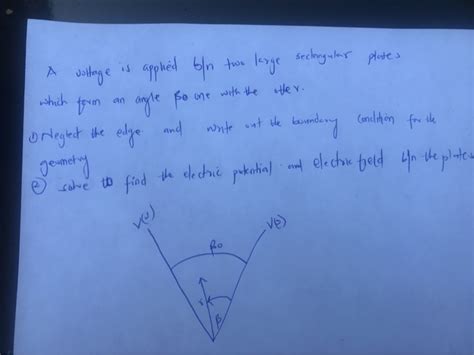 A voltage is applied b/n two large rectangular plates
which form an angle βo one with the other.
① Neglect the edge and write out the boundary condition for the
geometry
② solve to find the electric potential and electric field b/n the plates
V(2)
βo
r
β